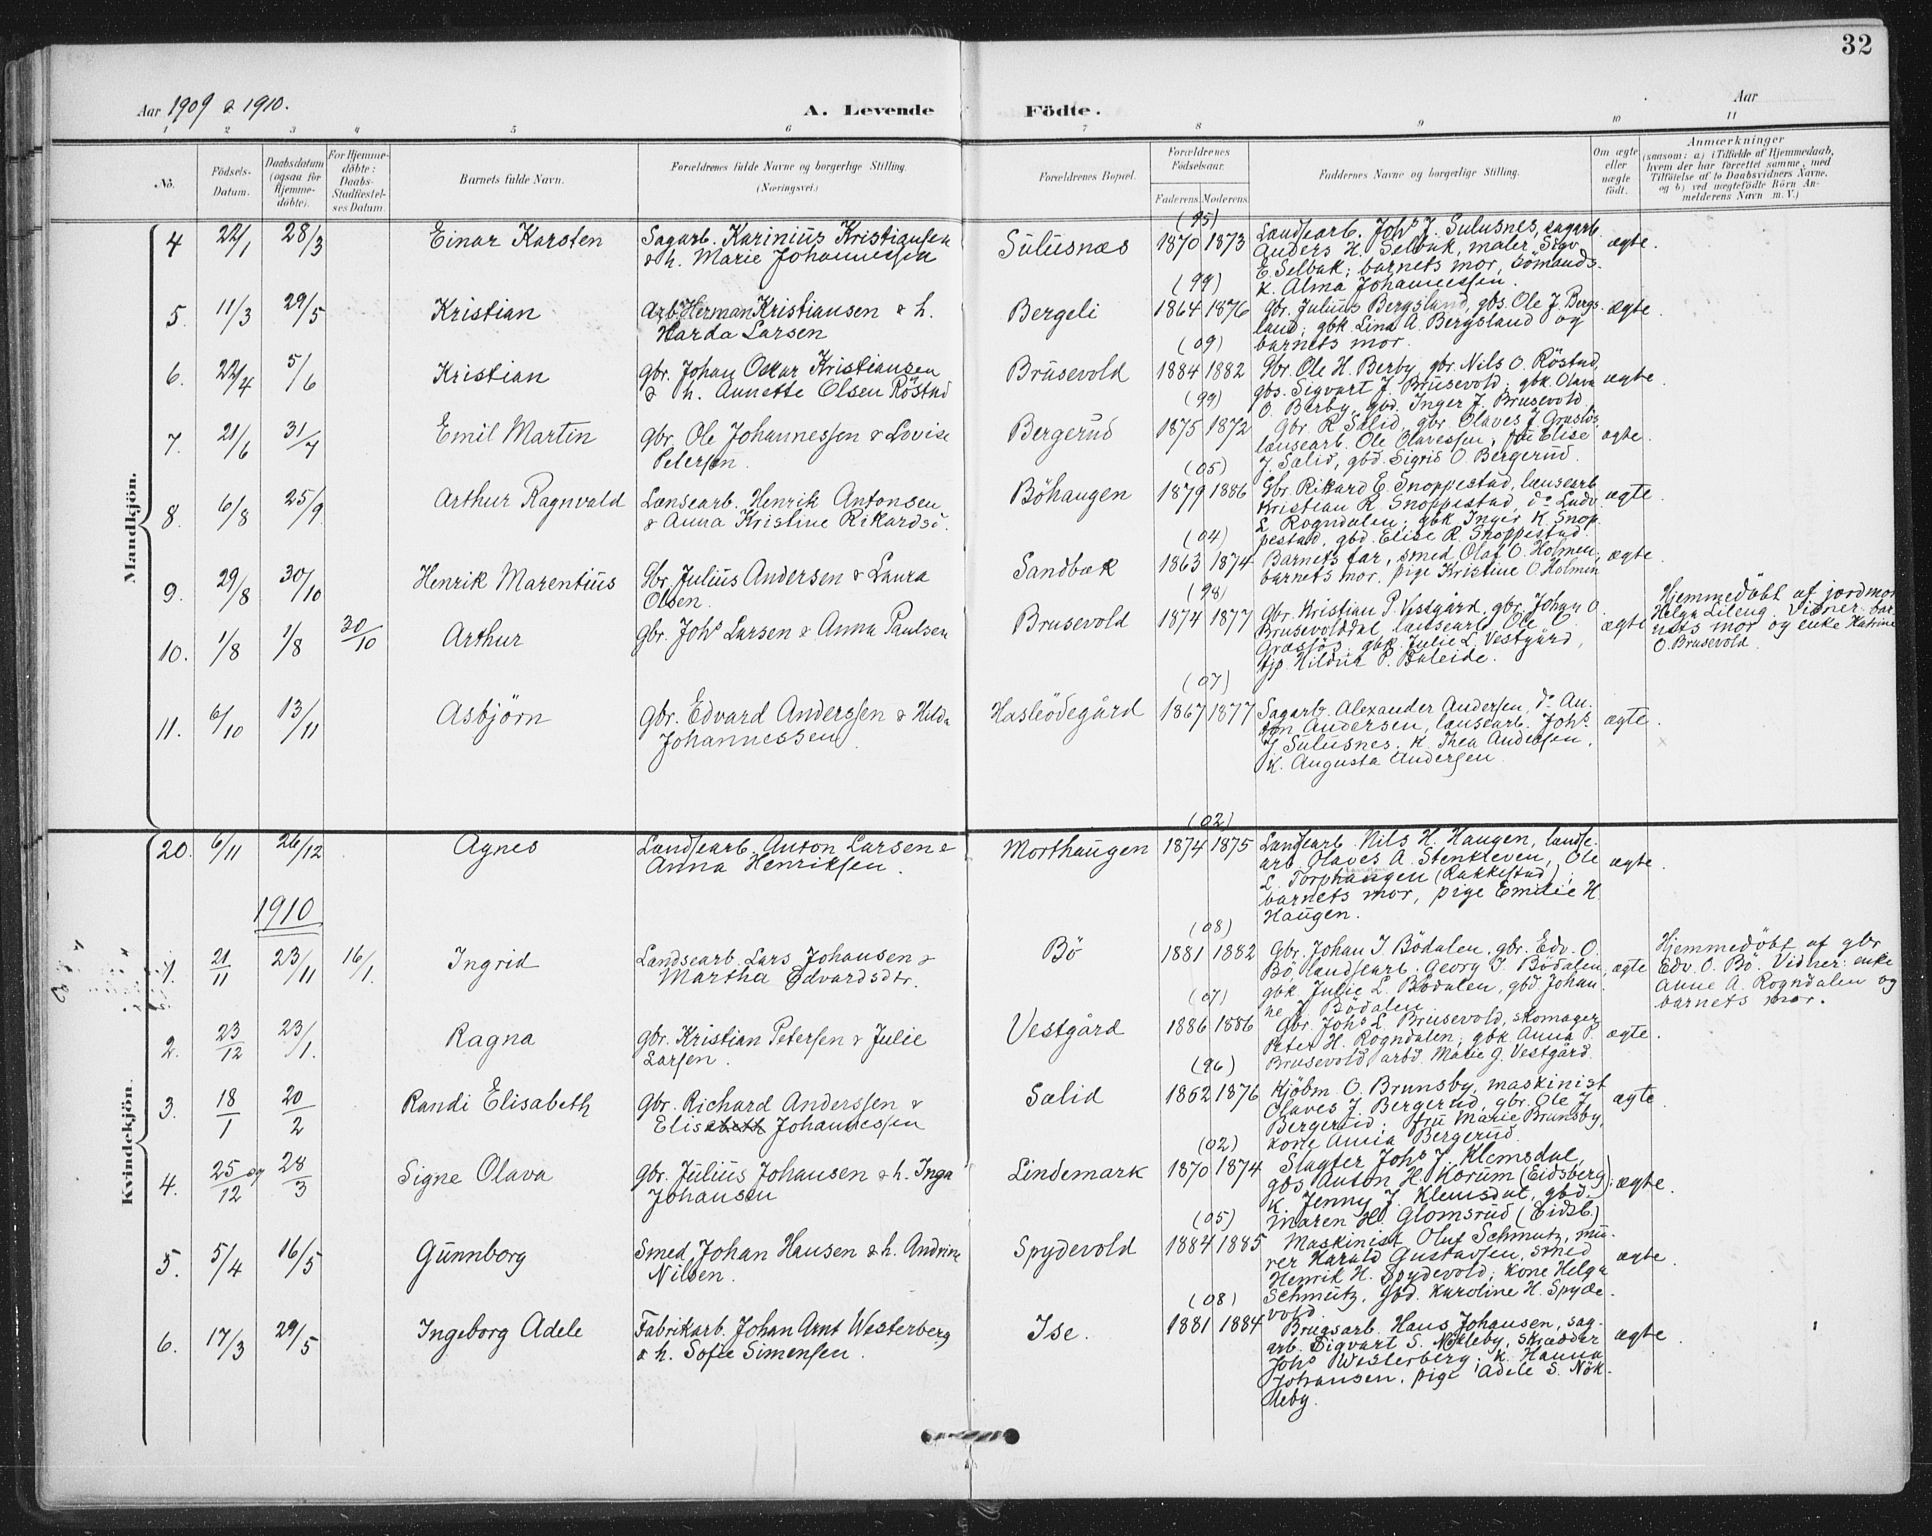 32
Aar 1909 & 1910.
A. Levende Födte.
Aar
1 2 3 4 5 6 7 8 9 10 11
No.
Födsels-
Datum.
Daabsdatum
(ogsaa for
Hjemme-
döbte).
For Hjemme-
döbte:
Daabs-
Stadfæstel-
ses Datum.
Barnets fulde Navn.
Forældrenes fulde Navne og borgerlige Stilling.
(Næringsvei.)
Forældrenes Bopæl.
Forældrenes
Födselsaar.
Faderens. Moderens.
Faddernes Navne og borgerlige Stilling.
Om ægte
eller
uægte
födt.
Anmærkninger
(saasom: a) i Tilfælde af Hjemmedaab,
hvem der har forrettet samme, med
Tilföielse af to Daabsvidners Navne,
og b) ved uægtefödte Börn An-
melderens Navn m. V.)
Mandkjön.
4 22/1 28/3 Einar Karsten
Sagarb. Karinius Kristiansen
& h. Marie Johannessen
Sulusnæs
(95)
1870 1873
Landsearb. Johs J. Sulusnes, sagarb.
Anders H. Selbak, maler Sigv.
E. Selbak; barnets mor, sömands-
k. Alma Johannessen.
ægte.
5. 11/3 29/5 Kristian
Arb. Herman Kristiansen & h.
Harda Larsen
Bergeli
(99)
1864 1876
Gbr. Julius Bergsland, gbs. Ole J. Bergs-
land; gbk. Lina A. Bergsland og
barnets mor.
ægte.
6. 22/4 5/6 Kristian
gbr. Johan Oskar Kristiansen
& h. Annette Olsen Röstad
Brusevold
(09)
1884 1882
Gbr. Ole H. Berby, gbr. Nils O. Röstad,
gbs. Sigvart J. Brusevold; gbk. Olava
O. Berby, gbd. Inger J. Brusevold
ægte.
7. 21/6 31/7 Emil Martin
gbr. Ole Johannessen & Lovise
Petersen.
Bergerud
(99)
1875 1872
Gbr. R. Salid, gbr. Olaves J. Grasjös,
lansearb. Ole Olavessen; fru Elise
J. Salid, gbd. Sigrid O. Bergerud.
ægte.
8. 6/8 25/9 Arthur Ragnvald
Lansearb. Henrik Antonsen
& Anna Kristine Rikardsd.
Böhaugen
(05)
1879 1886
Gbr. Rikard E. Snoppestad, lansearb.
Kristian R. Snoppestad, do Ludv.
L. Rogndalen; gbk. Inger K. Snop-
pestad, gbd. Elise R. Snoppestad.
ægte.
9. 29/8 30/10 Henrik Marentius
Gbr. Julius Andersen & Laura
Olsen.
Sandbæk
(04)
1863 1874
Barnets far, smed Olaf O. Holmen;
barnets mor, pige Kristine O. Holmen
ægte.
10. 1/8 1/8 30/10 Arthur
Gbr. Johs Larsen & Anna Paulsen
Brusevold
(98)
1874 1877
Gbr. Kristian P. Vestgård, gbr. Johan O.
Brusevolddal, lansearb. Ole O.
Grasjös; gbk. Julie L. Vestgård,
P. Buleide.
ægte
Hjemmedöbt af jordmor
Helga Lileng. Vidner: bar-
nets mor og enke Katrine
O. Brusevold.
11. 6/10 13/11 Asbjörn
Gbr. Edvard Anderssen & Hilda
Johannessen
Haslèödegård
(07)
1867 1877
Sagarb. Alexander Andersen, do An-
ton Andersen, lansearb. Johs
J. Sulusnes. k. Thea Andersen,
k. Augusta Andersen.
ægte.
Kvindekjön.
20. 6/11 26/12 Agnes
Landsearb. Anton Larsen &
Anna Henriksen.
Morthaugen
(02)
1874 1875
Landsearb. Nils H. Haugen, landse-
arb. Olaves A. Stenkleven, Ole
L. Torphaugen (Rakkestad);
barnets mor, pige Emilie H.
Haugen.
ægte.
1910
1. 21/11 23/11 16/1. Ingrid
Landsearb. Lars Johansen &
Martha Edvardsdtr.
Bö
(08)
1881 1882
Gbr. Johan J. Bödalen, gbr. Edv. O.
Bö, landsearb. Georg J. Bödalen,
gbk. Julie L. Bödalen, gbd. Johan-
ne J. Bödalen
ægte
Hjemmedöbt af gbr.
Edv. O. Bö. Vidner: enke
Anne A. Rogndalen og
barnets mor.
2. 23/12 23/1. Ragna
gbr. Kristian Petersen & Julie
Larsen.
Vestgård
(07)
1886 1886
Gbr. Johs L. Brusevold, skomager
Peter H. Rogndalen; gbk. Anna P.
Brusevold, arbd. Marie J. Vestgård.
ægte.
3. 18/1 20/2 Randi Elisabeth
Gbr. Richard Anderssen &
Elisabeth Johannessen
Salid
(96)
1862 1876
Kjöbm. O. Brunsby, maskinist
Olaves J. Bergerud, gbr. Ole J.
Bergerud; fru Marie Brunsby,
kone Anna Bergerud.
ægte.
4. 25/12 09 28/3 Signe Olava
Gbr. Julius Johansen & h. Inga
Johansen
Lindemark
(02)
1870 1874
Slagter Johs J. Klemsdal,
gbs Anton H. Korum (Eidsberg);
k. Jenny J. Klemsdal, gbd.
Maren H. Glomsrud (Eidsb.)
ægte.
5. 5/4 16/5 Gunnborg
Smed Johan Hansen & h. Andrine
Nilsen.
Spydevold
(05)
1884 1885
Maskinist Oluf Schmutz, mu-
rer Harald Gustavsen, smed
Henrik H. Spydevold; kone Helga
Schmutz, gbd. Karoline H. Spyde-
vold.
ægte.
6. 17/3 29/5 Ingeborg Adele
Fabrikarb. Johan Arnt Westerberg
& h. Sofie Simensen.
Ise.
(08)
1881 1884
Brugsarb. Hans Johansen, sag-
arb. Sigvart S. Nökleby, skrædder
Johs Westerberg; k. Hanna
Johansen, pige Adele S. Nök-
leby.
ægte.